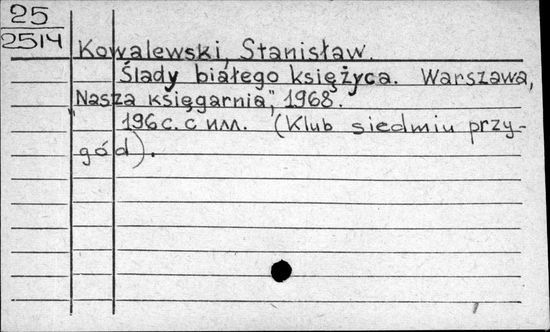 25
2514
Kowalewski, Stanisław.
Ślady białego księżyca. Warszawa,
"Nasza księgarnia", 1968.
196 с. с илл. (Klub siedmiu przy-
gód).